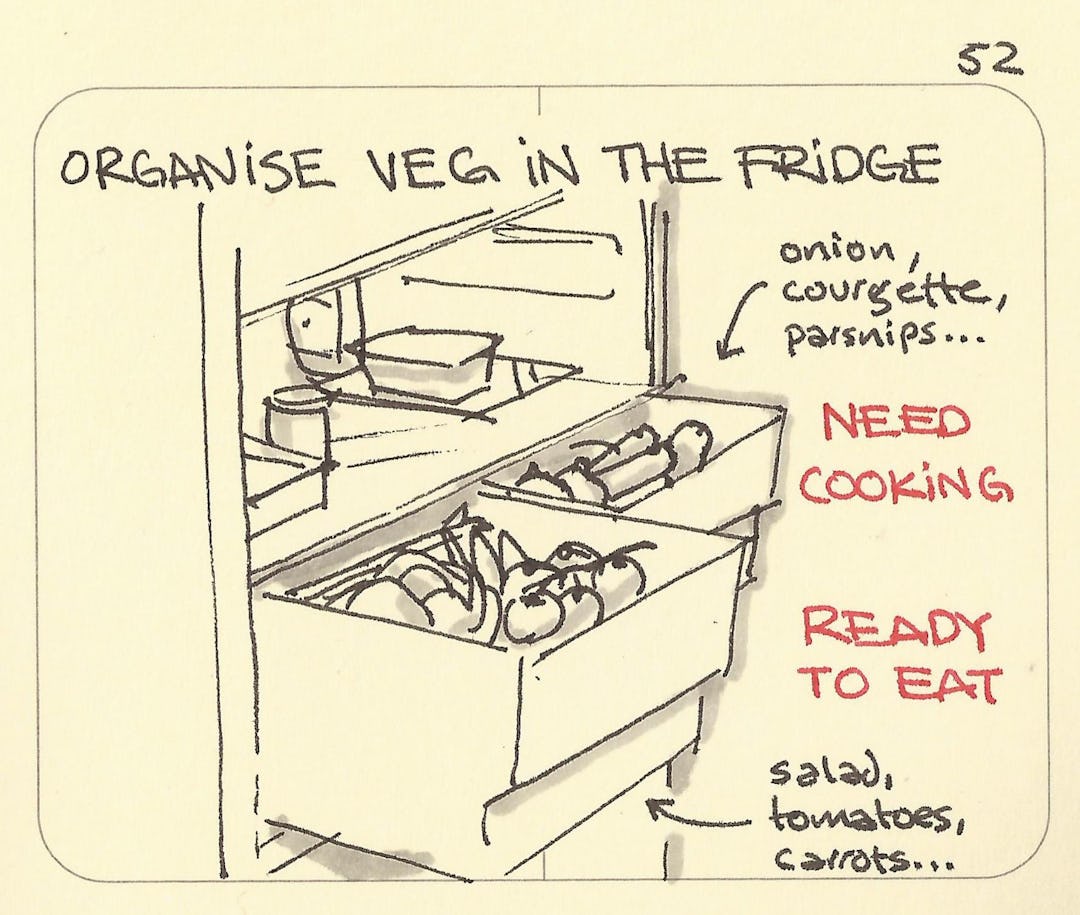 52
ORGANISE VEG IN THE FRIDGE
onion,
courgette,
parsnips...
NEED
COOKING
READY
TO EAT
salad,
tomatoes,
carrots...